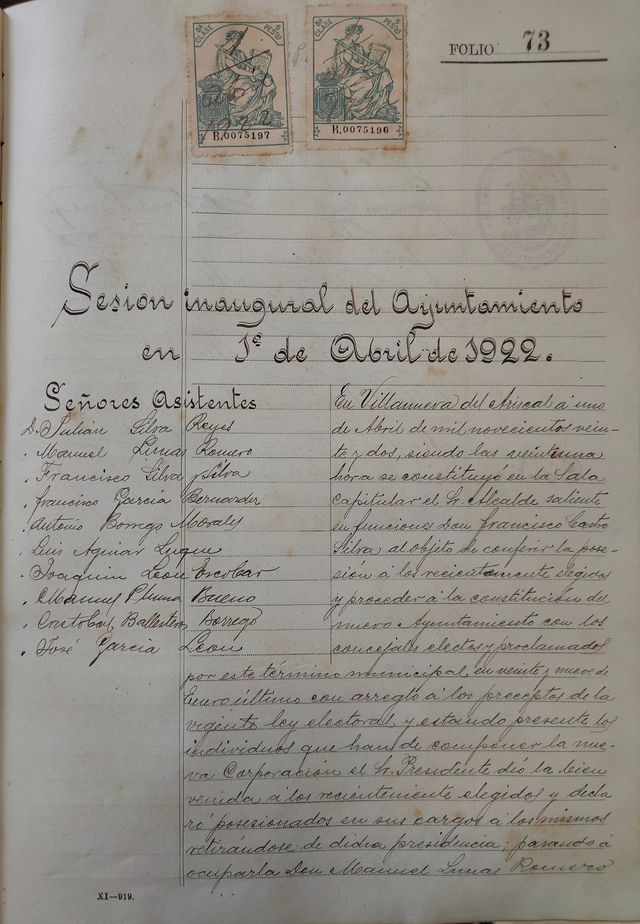 8ª CLASE 5 PESES
8ª CLASE 5 PESES
B.0075197
B.0075196
FOLIO 73
Sesion inaugural del Ayuntamiento
en 1º de Abril de 1922.
Señores Asistentes
D. Julian Silva Reyes
" Manuel Limas Romero
" Francisco Silva y Silva
" Francisco Garcia Bernarder
" Antonio Borrego Morales
" Luis Aguiar Luque
" Joaquin Leon Escobar
" Manuel Pluma Bueno
" Cristobal Ballesteros Borrego
" Jose Garcia Leon
En Villanueva del Ariscal á uno
de Abril de mil novecientos vein-
te y dos, siendo las veintenna
hora se constituyó en la Sala
capitular el Sr. Alcalde saliente
en funciones Don Francisco Castro
Silva al objeto de conferir la pose-
sión á los recientemente elegidos
y proceder á la constitución del
nuevo Ayuntamiento con los
concejales electos y proclamados
por este término municipal en veinte y nueve de
Enero último con arreglo á los preceptos de la
vigente ley electoral, y estando presente los
individuos que han de componer la nue-
va Corporación el Sr. Presidente dió la bien
venida á los recienteniente elegidos y decla
ró posesionados en sus cargos á los mismos
retirándose de dicha presidencia; pasando á
ocuparla Don Manuel Limas Romero
XI—919.